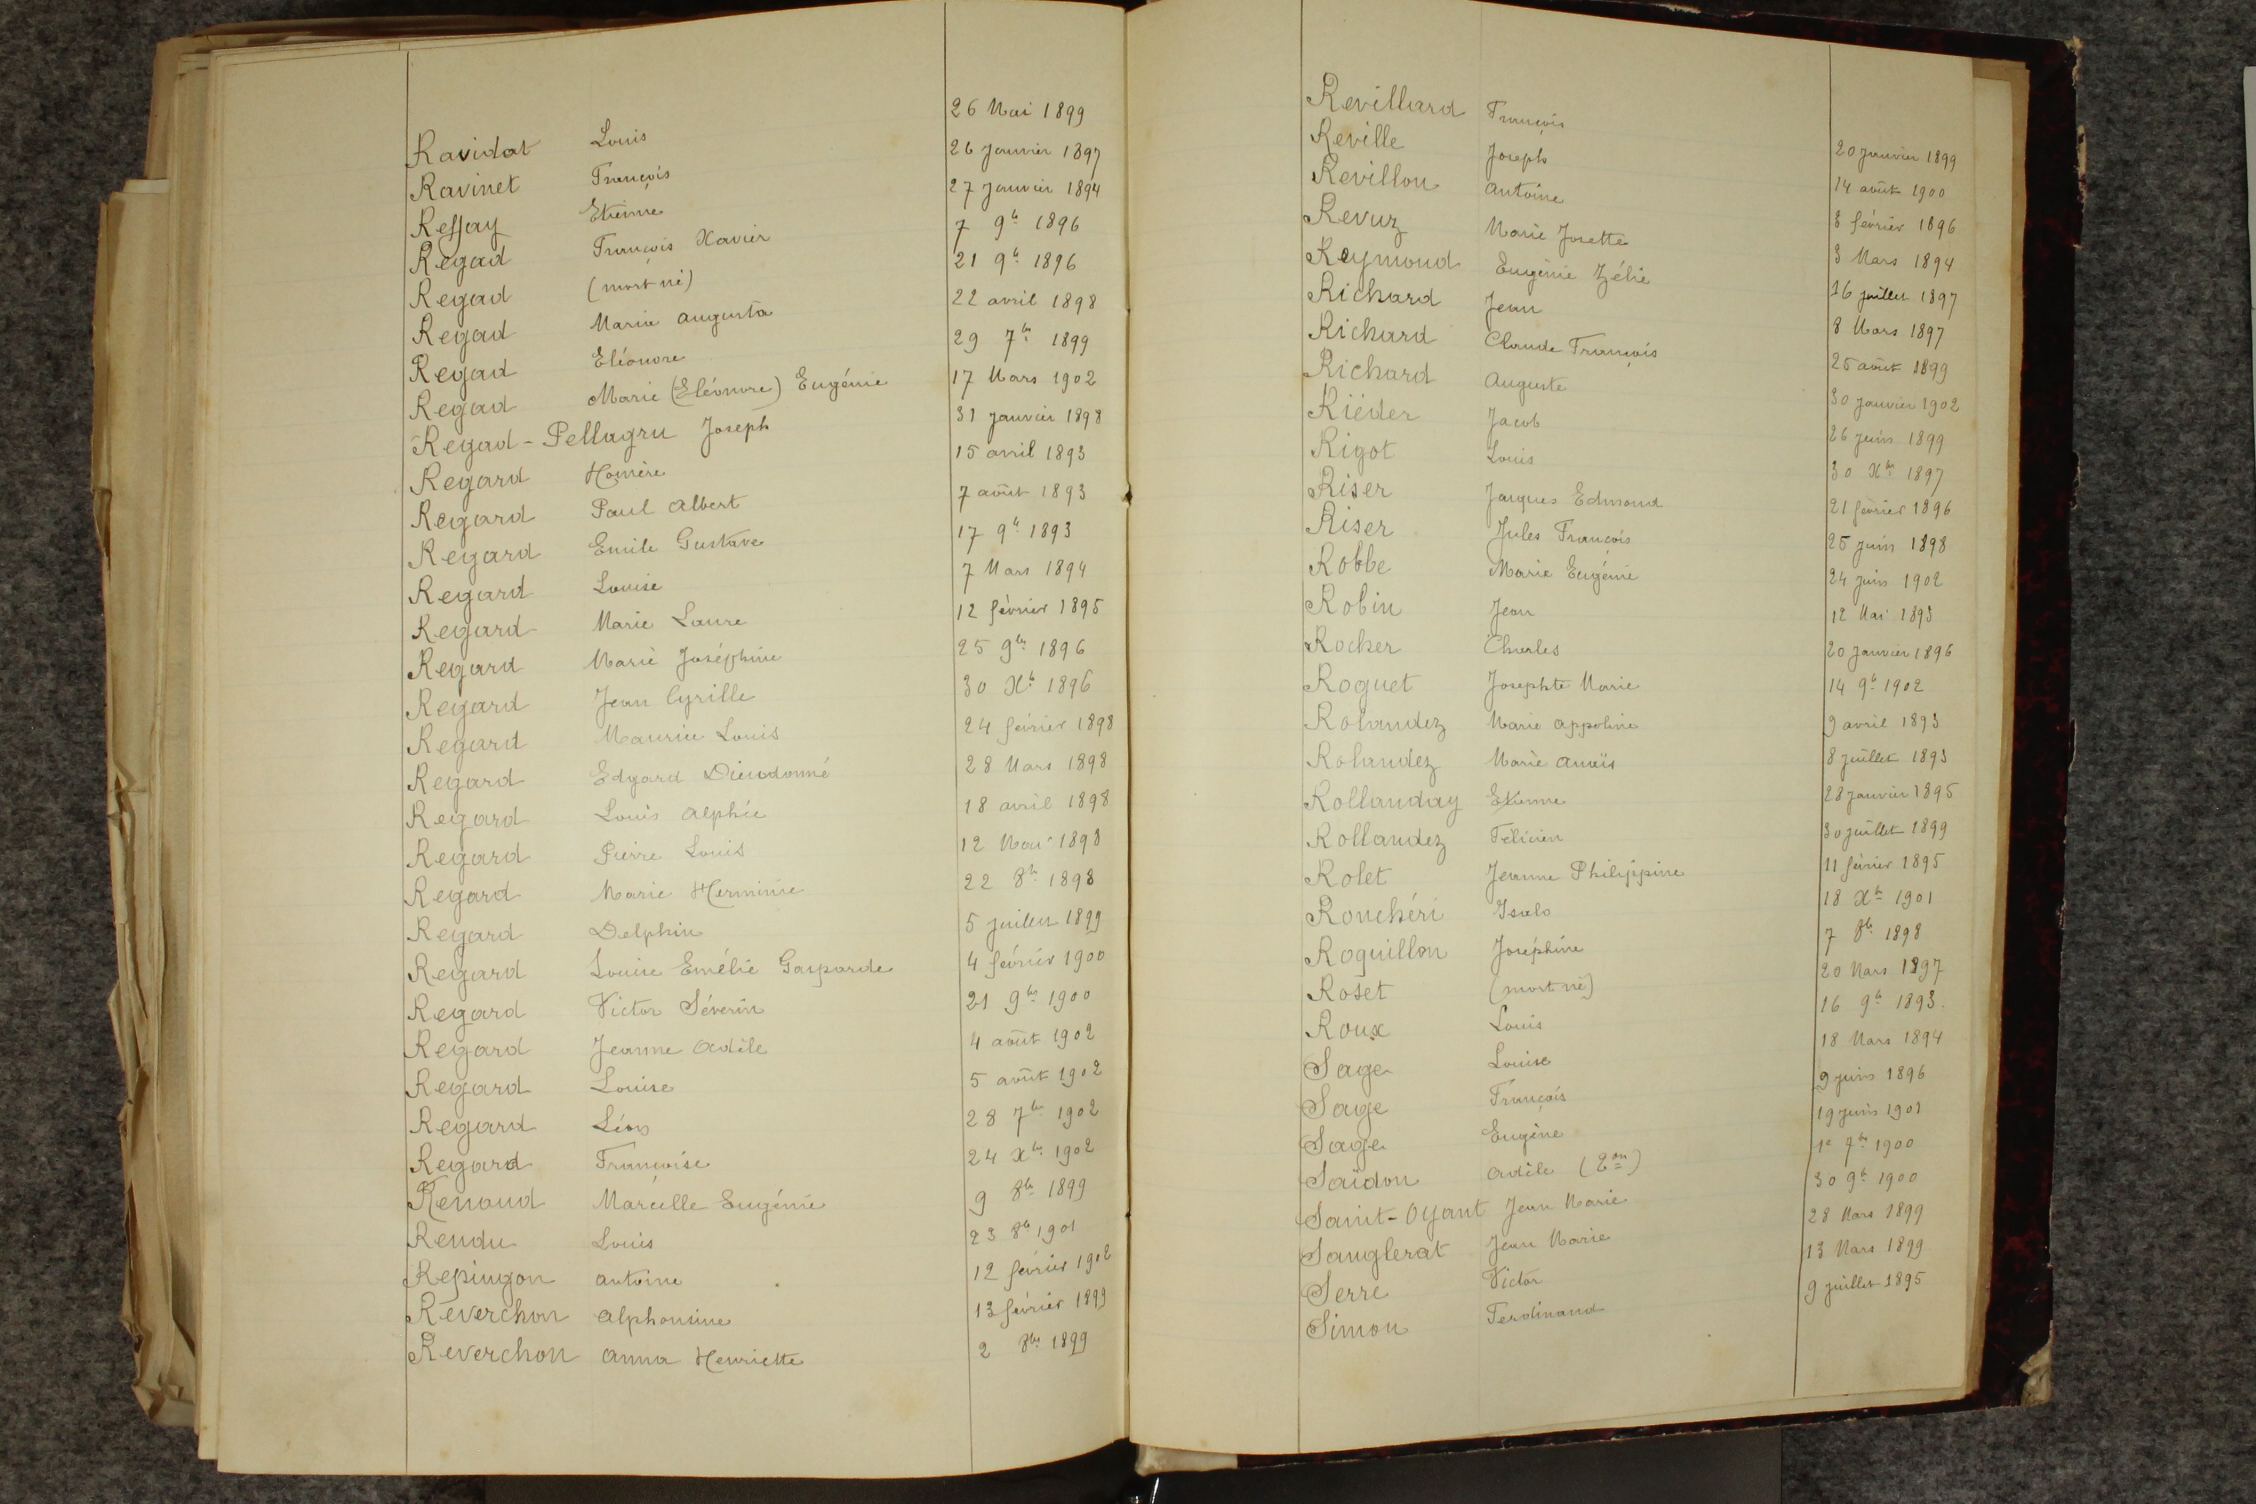 Ravidat Louis 26 Mai 1899
Ravinet François 26 Janvier 1897
Reffay Etienne 27 Janvier 1894
Regad François Xavier 7 9b 1896
Regad (mort né) 21 9b 1896
Regad Maria Augusta 22 avril 1898
Regad Eléonore 29 7br 1899
Regad Marie (Eléonore) Eugénie 17 Mars 1902
Regad-Pellagru Joseph 31 Janvier 1898
Regard Homère 15 avril 1893
Regard Paul Albert 7 août 1893
Regard Emile Gustave 17 9b 1893
Regard Louise 7 Mars 1894
Regard Marie Laure 12 février 1895
Regard Marie Joséphine 25 9br 1896
Regard Jean Cyrille 30 Xb 1896
Regard Maurice Louis 24 février 1898
Regard Edgard Dieudonné 28 Mars 1898
Regard Louis Alphée 18 avril 1898
Regard Pierre Louis 12 Mai 1898
Regard Marie Herminie 22 8b 1898
Regard Delphin 5 juillet 1899
Regard Louise Emélie Gasparde 4 février 1900
Regard Victor Séverin 21 9br 1900
Regard Jeanne Adèle 4 août 1902
Regard Louise 5 août 1902
Regard Léon 28 7br 1902
Regard Françoise 24 Xbr 1902
Renaud Marcelle Eugénie 9 8br 1899
Rendu Louis 23 8b 1901
Repingon antoine 12 février 1902
Reverchon alphonsine 13 février 1899
Reverchon anna Henriette 2 8br 1899
Revillard François 20 Janvier 1899
Reville Joseph 14 août 1900
Revillon Antoine 8 février 1896
Revuz Marie Josette 3 Mars 1894
Reymond Eugénie Zélie 16 juillet 1897
Richard Jean 8 Mars 1897
Richard Claude François 25 août 1899
Richard Auguste 30 Janvier 1902
Riéder Jacob 26 juin 1899
Rigot Louis 30 Xbr 1897
Riser Jacques Edmond 21 février 1896
Riser Jules François 25 juin 1898
Robbe Marie Eugénie 24 juin 1902
Robin Jean 12 Mai 1893
Rocher Charles 20 Janvier 1896
Roguet Josephte Marie 14 9b 1902
Rolandez Marie appoline 9 avril 1893
Rolandez Marie anaïs 8 juillet 1893
Rollanday Etienne 28 Janvier 1895
Rollandez Félicien 30 juillet 1899
Rolet Jeanne Philippine 11 février 1895
Ronchéri Isalo 18 Xb 1901
Roquillon Joséphine 7 8b 1898
Roset (mort né) 20 Mars 1897
Roux Louis 16 9b 1893.
Sage Louise 18 Mars 1894
Sage François 9 juin 1896
Sage Eugène 19 juin 1901
Saidon Adèle (2on) 1e 7br 1900
Saint-Oyant Jean Marie 30 9b 1900
Sanglerat Jean Marie 28 Mars 1899
Serre Victor 13 Mars 1899
Simon Ferdinand 9 juillet 1895